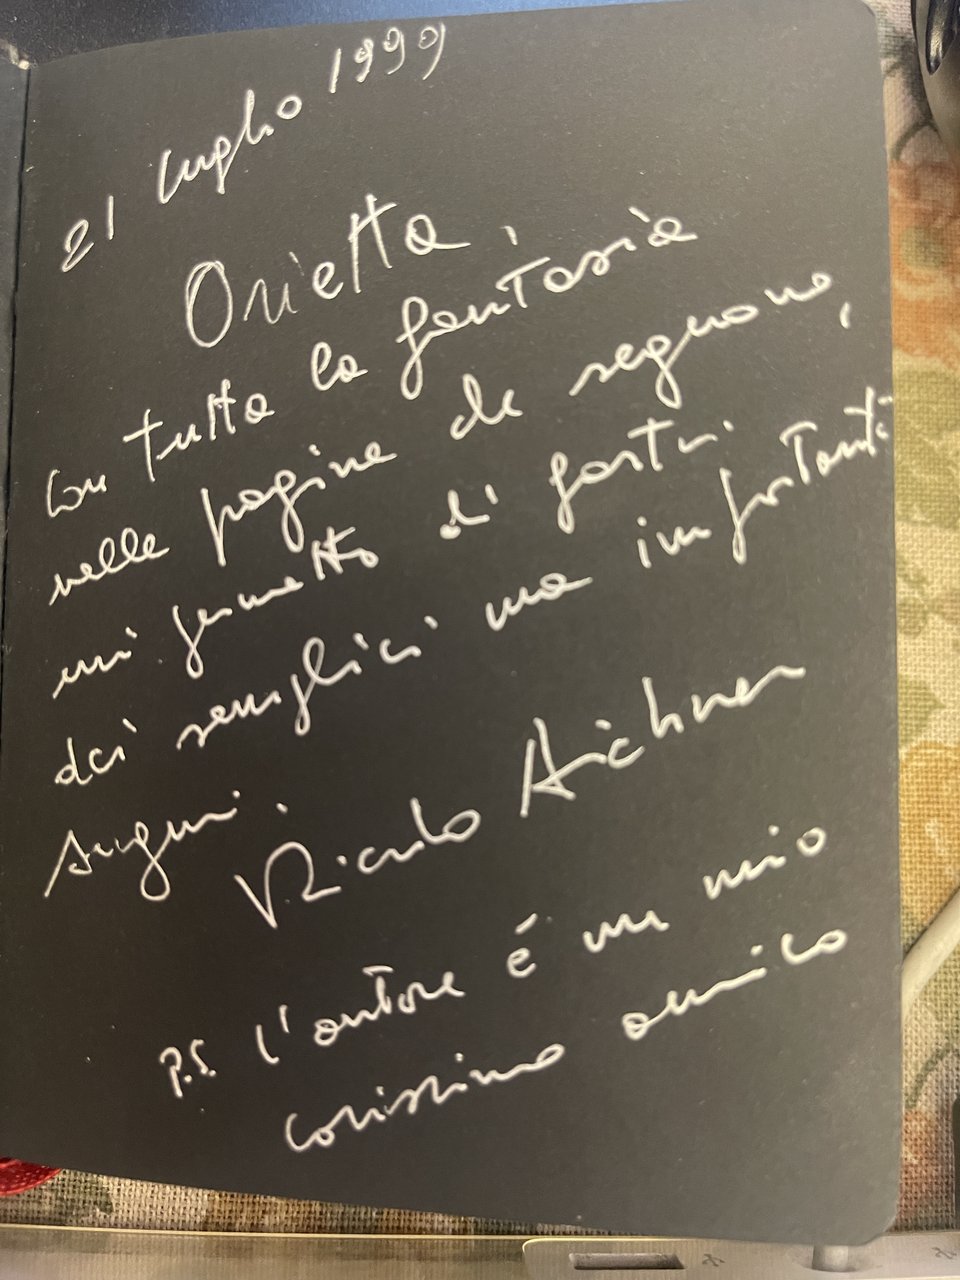 21 luglio 1999
Orietta,
Con tutta la fantasia
nelle pagine che seguono,
mi permetto di farti
dei semplici ma importanti
Auguri.
Aichner
P.S. l'autore é un mio
carissimo amico